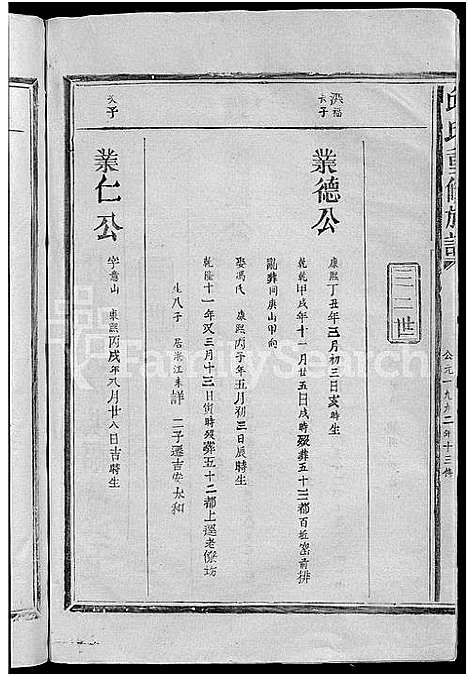 邱氏重修族譜
三二世
公元一九九二年十三修
洪福
長子
業德公
康熙丁丑年三月初三日亥時生
乾隆甲戌年十一月廿五日戌時歿葬五十三都百近窑前排
亂葬同庚山甲向
娶馮氏 康熙丙子年五月初三日辰時生
乾隆十一年又三月十三日寅時歿葬五十二都上遥老傢坊
生八子 居浙江未詳 二子遷吉安太和
次子
業仁公
字意山 康熙丙戌年八月廿八日吉時生
FamilySearch